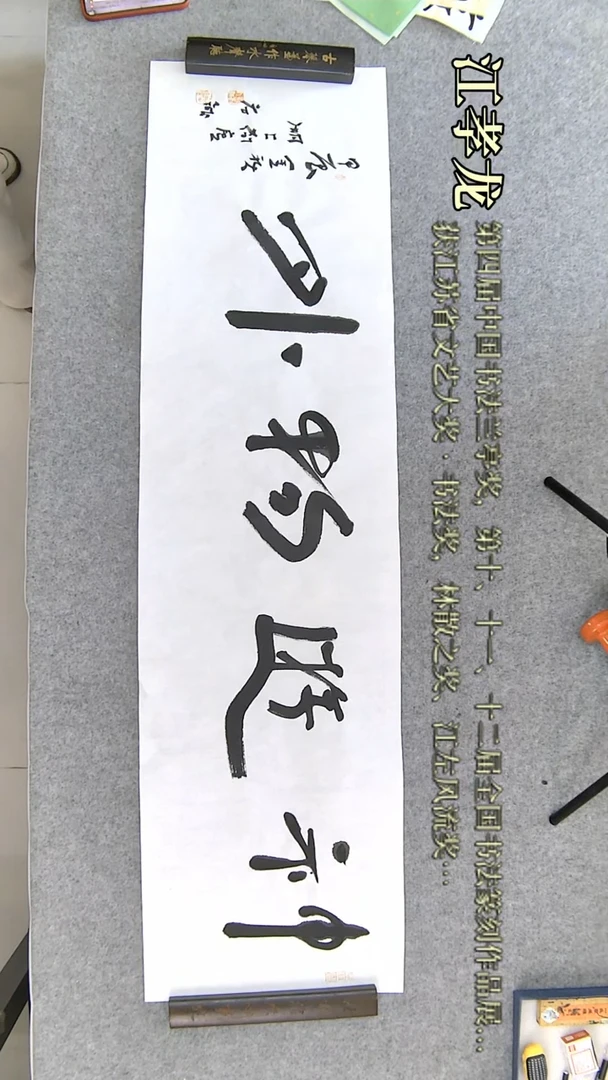 江孝龙
第四届中国书法兰亭奖，第十、十一、十二届全国书法篆刻作品展...
获江苏省文艺大奖·书法奖，林散之奖、江左风流奖...
神遊物外
甲辰金秋